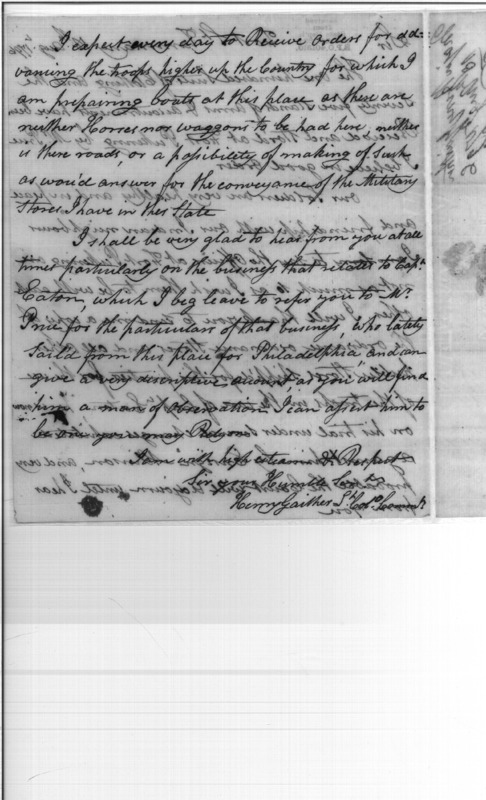 I expect every day to Receive orders for ad-
vancing the troops higher up the Country for which I
am prepairing boats at this place as there are
neither Horses nor waggons to be had here, neither
is there roads, or a possibility of making of Such
as wou'd answer for the conveyance of the Military
Stores I have in this State
I shall be very glad to hear from you at all
times particularly on the business that relates to Capt.
Eaton, which I beg leave to refer you to Mr.
Price for the particulars of that business, who lately
Sail'd from this place for Philadelphia, and can
give a very descriptive account, as you will find
him a man of observation I can assert him to
be one you may Rely on
I am with high esteem & Respect
Sir your Humble Servt.
Henry Gaither Lt. Col. Commt.